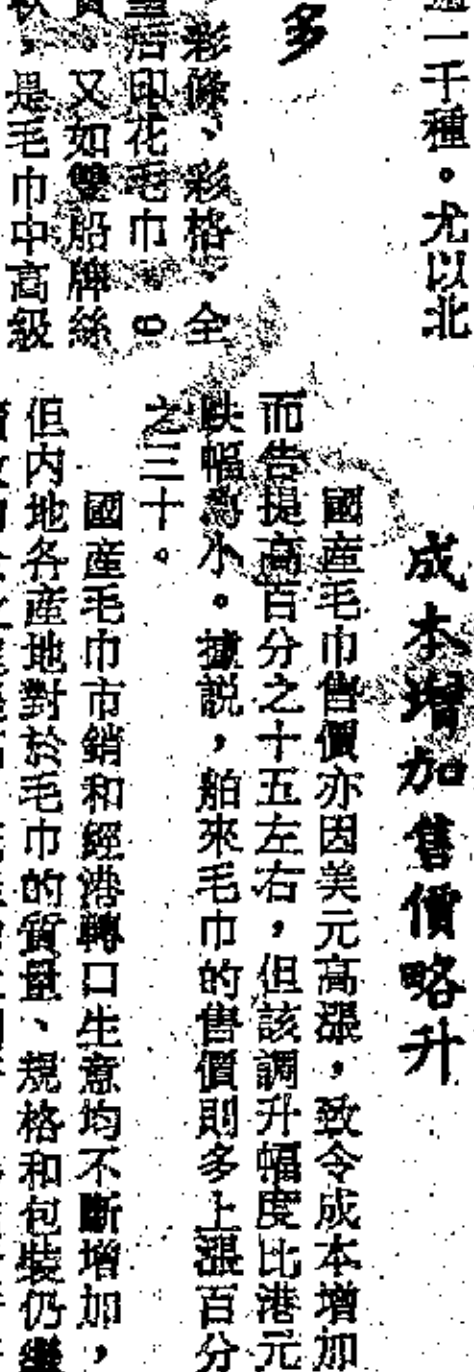 過一千種。尤以北
多
彩條、彩格、全
后印花毛巾。
又如雙船牌絲
，是毛巾中高級
成本增加售價略升
國產毛巾售價亦因美元高漲，致令成本增加
而告提高百分之十五左右，但該調升幅度比港元
跌幅為小。據説，舶來毛巾的售價則多上漲百分
之三十。
國產毛巾市銷和經港轉口生意均不斷增加，
但内地各產地對於毛巾的質量、規格和包裝仍繼